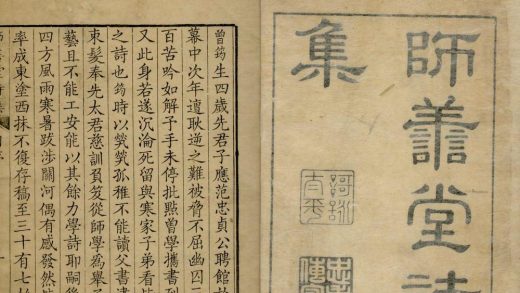 師善堂詩
集
曾筠生四歲先君子應范忠貞公聘館於
幕中次年遭耿逆之難被脅不屈幽囚
百苦吟如解予手未停批點曾學攜書到
又此身若遂沉淪死留與寒家子弟看
之詩也筠時以煢煢孤稚不能讀父書
束髮奉先太君慈訓負笈從師學爲舉
藝且不能工安能以其餘力學詩耶嗣後
四方風雨寒暑跋涉關河偶有感發然
率成東塗西抹不復存稿至三十有七